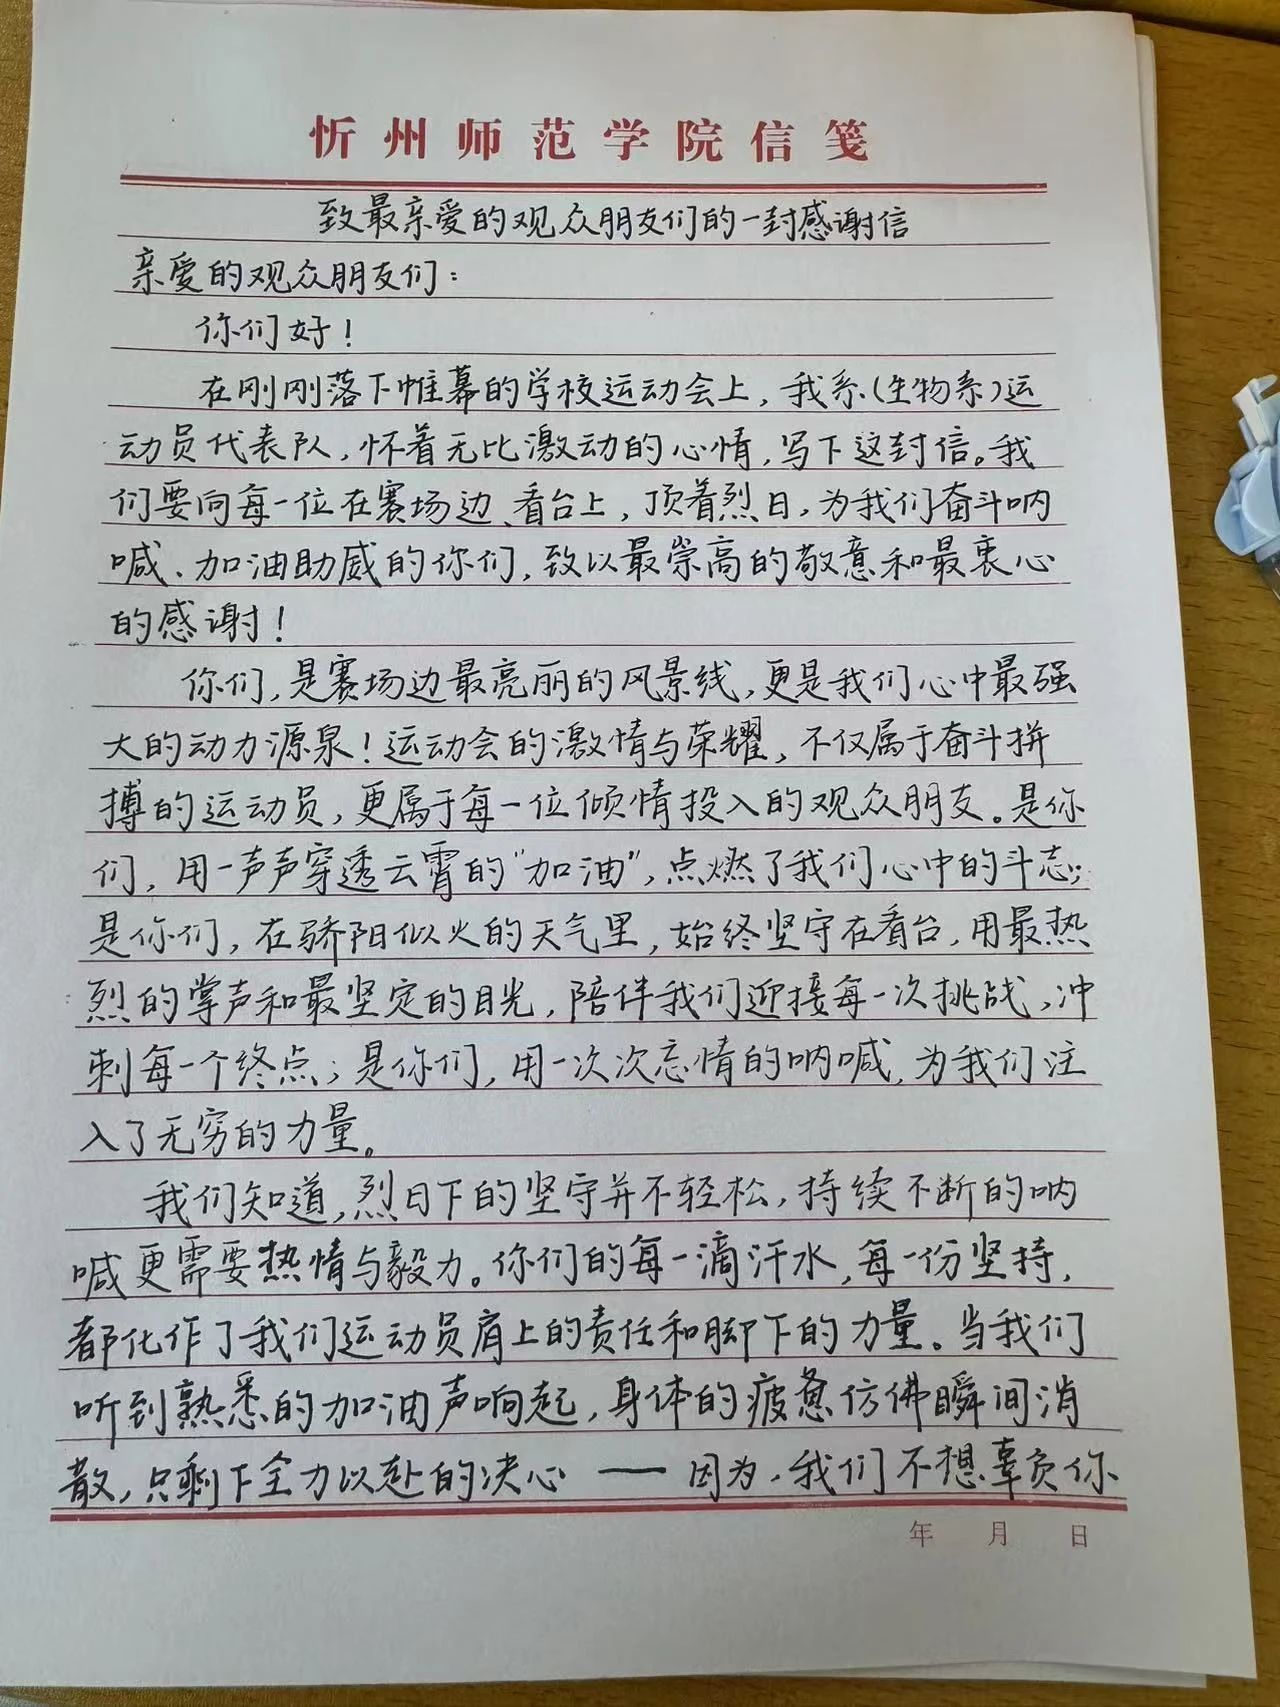 忻州师范学院信笺
致最亲爱的观众朋友们的一封感谢信
亲爱的观众朋友们：
你们好！
在刚刚落下帷幕的学校运动会上，我系(生物系)运
动员代表队，怀着无比激动的心情，写下这封信。我
们要向每一位在赛场边、看台上，顶着烈日，为我们奋斗呐
喊、加油助威的你们，致以最崇高的敬意和最衷心
的感谢！
你们，是赛场边最亮丽的风景线，更是我们心中最强
大的动力源泉！运动会的激情与荣耀，不仅属于奋斗拼
搏的运动员，更属于每一位倾情投入的观众朋友。是你
们，用一声声穿透云霄的“加油”，点燃了我们心中的斗志；
是你们，在骄阳似火的天气里，始终坚守在看台，用最热
烈的掌声和最坚定的目光，陪伴我们迎接每一次挑战，冲
刺每一个终点；是你们，用一次次忘情的呐喊，为我们注
入了无穷的力量。
我们知道，烈日下的坚守并不轻松，持续不断的呐
喊更需要热情与毅力。你们的每一滴汗水，每一份坚持，
都化作了我们运动员肩上的责任和脚下的力量。当我们
听到熟悉的加油声响起，身体的疲惫仿佛瞬间消
散，只剩下全力以赴的决心——因为，我们不想辜负你
年 月 日